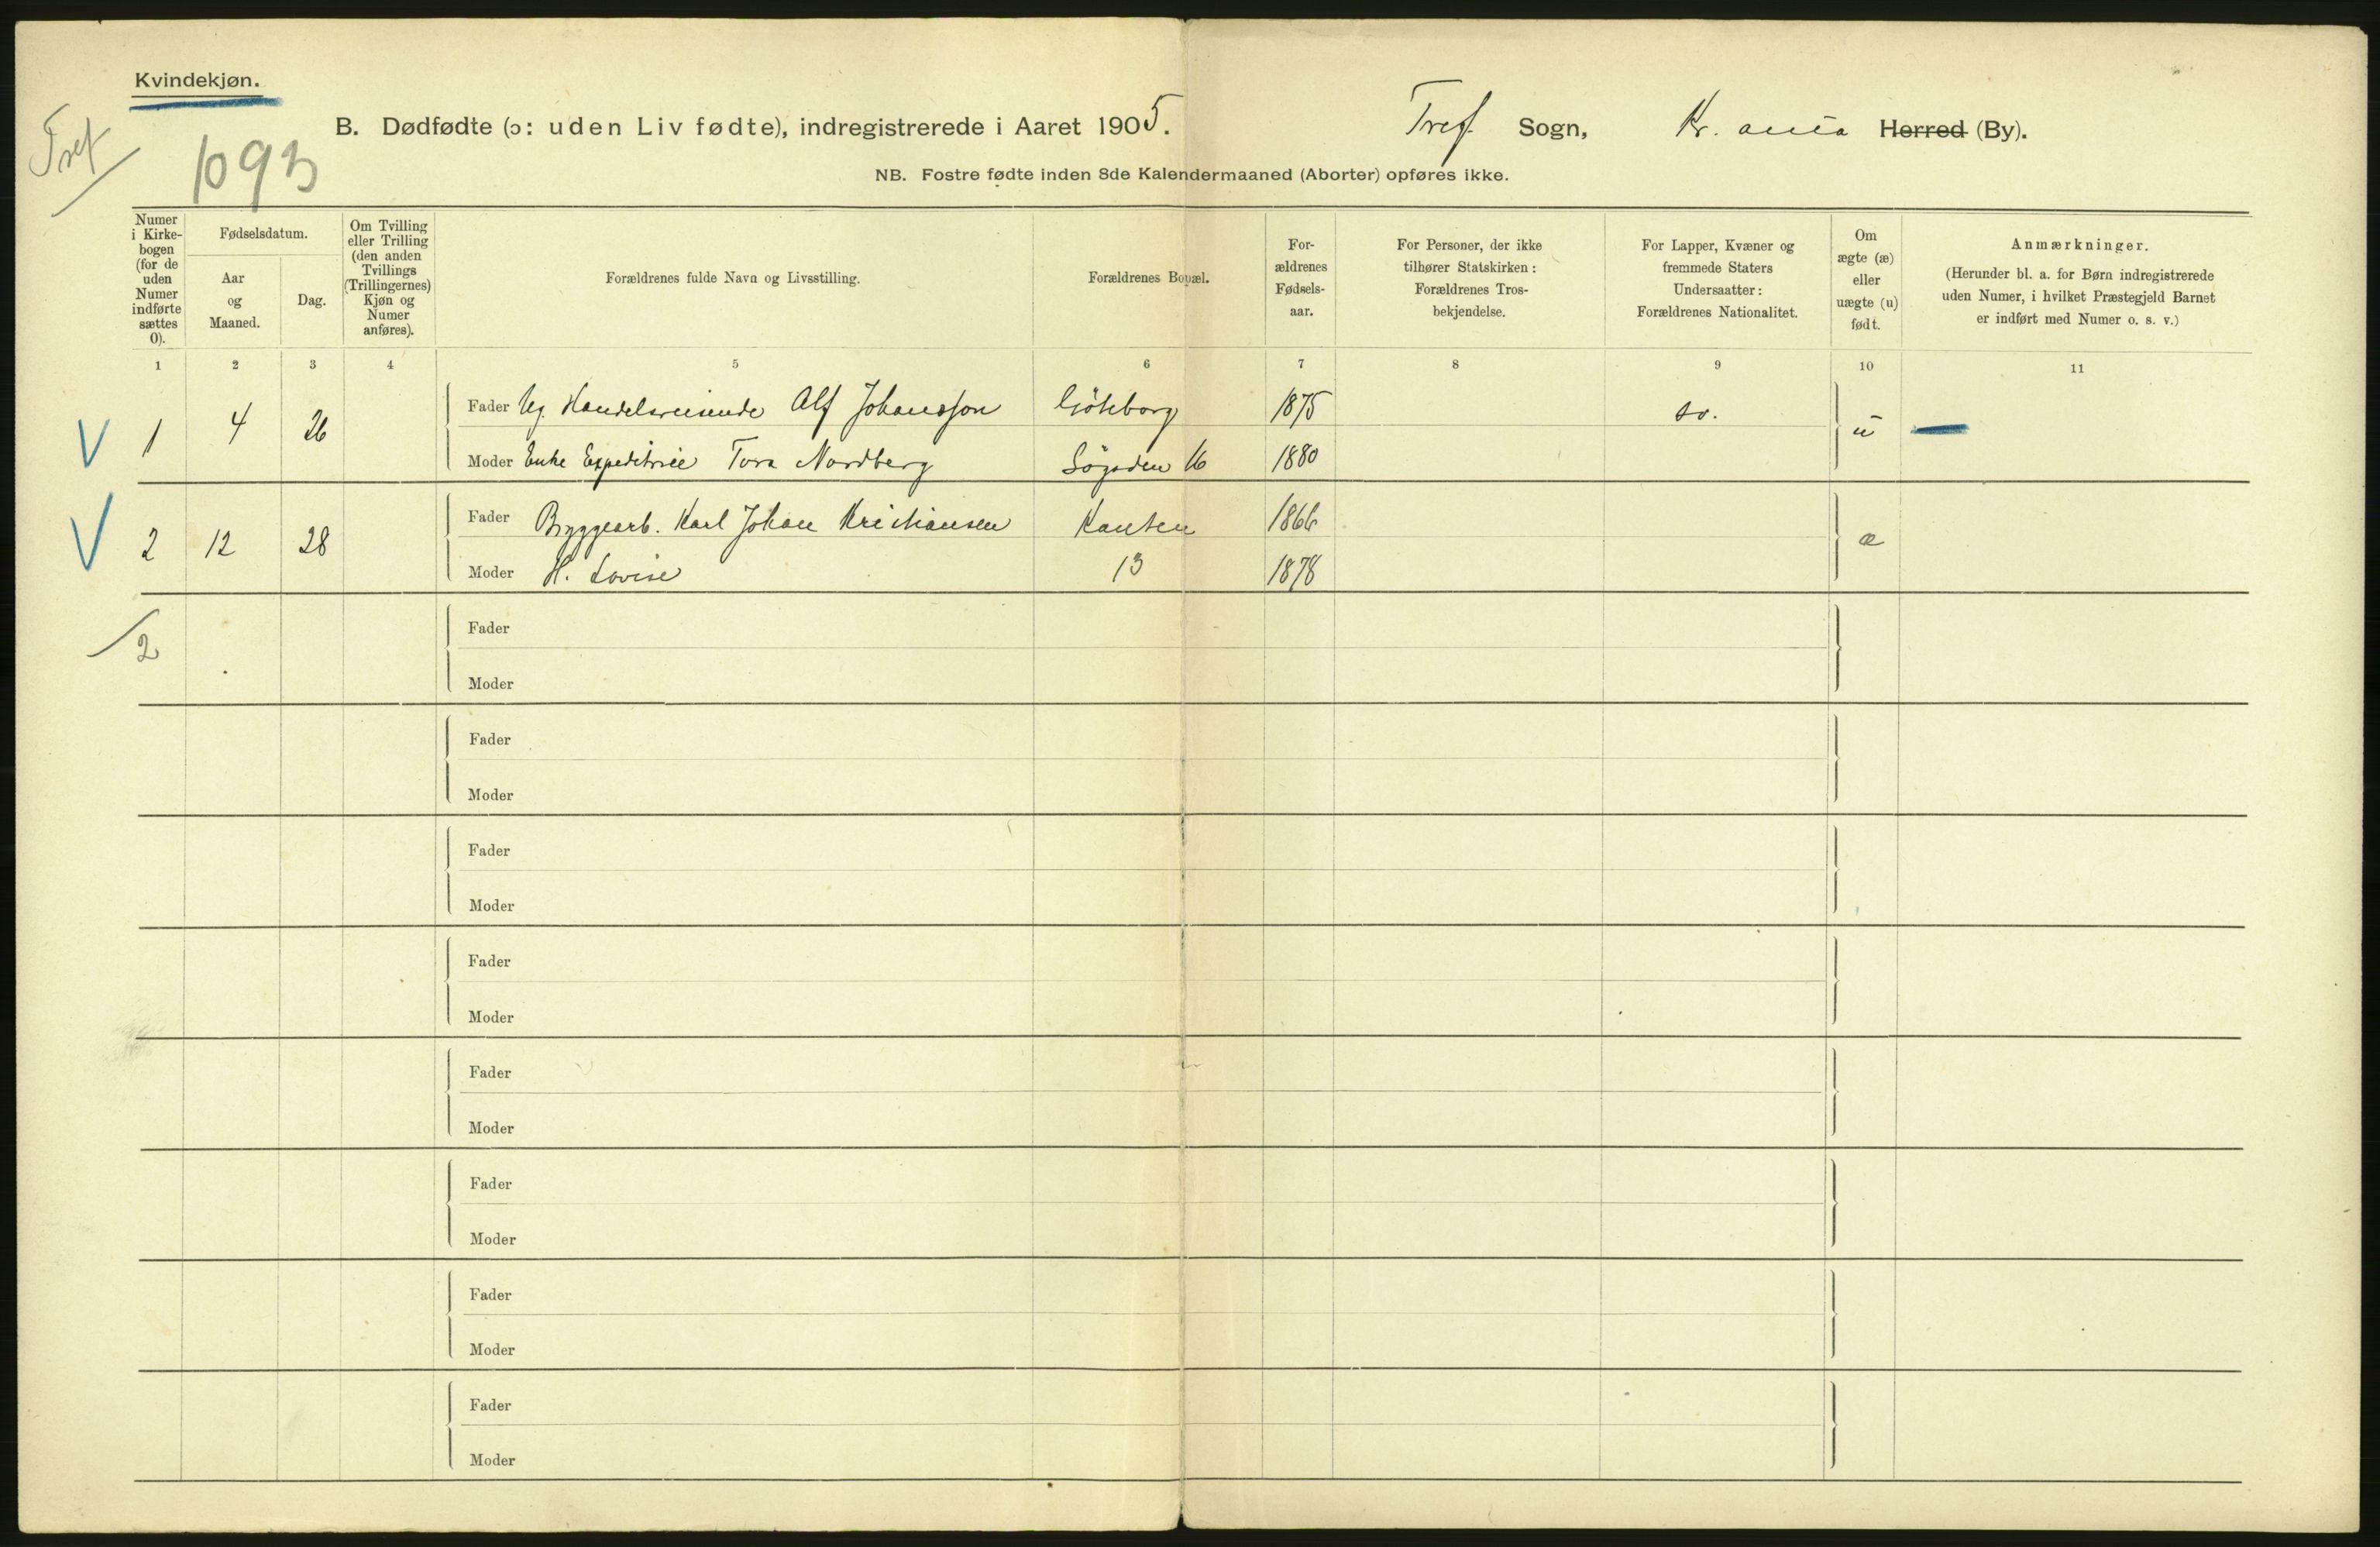 Kvindekjøn.
Tref
1093
B. Dødfødte (ɔ: uden Liv fødte), indregistrerede i Aaret 1905.
Tref. Sogn, Kr. ania Herred (By).
NB. Fostre fødte inden 8de Kalendermaaned (Aborter) opføres ikke.
Numer i Kirke-bogen (for de uden Numer indførte sættes 0).
Fødselsdatum.
Aar og Maaned.
Dag.
Om Tvilling eller Trilling (den anden Tvillings (Trillingernes) Kjøn og Numer anføres).
Forældrenes fulde Navn og Livsstilling.
Forældrenes Bopæl.
For-ældrenes Fødsels-aar.
For Personer, der ikke tilhører Statskirken: Forældrenes Tros-bekjendelse.
For Lapper, Kvæner og fremmede Staters Undersaatter: Forældrenes Nationalitet.
Om ægte (æ) eller uægte (u) født.
Anmærkninger.
(Herunder bl. a. for Børn indregistrerede uden Numer, i hvilket Præstegjeld Barnet er indført med Numer o. s. v.)
1 2 3 4 5 6 7 8 9 10 11
V 1 4 26 Fader Ug. Handelsreisende Alf Johansson Göteborg 1875 sv. u
Moder Enke Expeditrice Tora Nordberg 16 1880
V 2 12 28 Fader Bryggearb. Karl Johan Kristiansen Kanten 1866 æ
Moder H. Lovise 13 1878
2
Fader
Moder
Fader
Moder
Fader
Moder
Fader
Moder
Fader
Moder
Fader
Moder
Fader
Moder
Fader
Moder